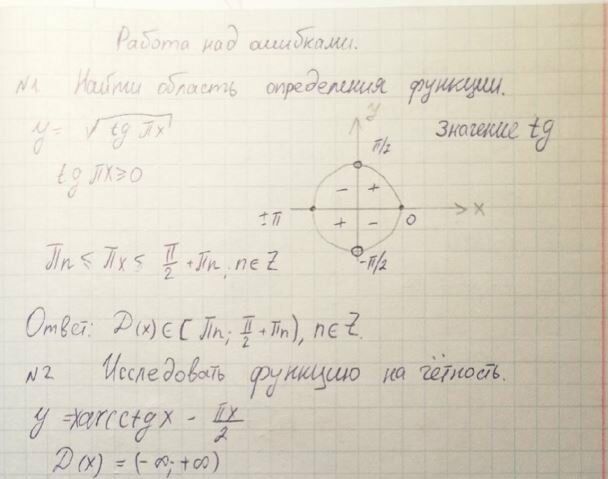 Работа над ошибками.
№1 Найти область определения функции.
y = √tg πx
Значение tg
tg πx ≥ 0
y
π/2
- +
±π 0 x
+ -
-π/2
πn ≤ πx ≤ π/2 + πn, n∈Z
Ответ: D(x) ∈ [πn; π/2 + πn), n∈Z.
№2 Исследовать функцию на чётность.
y = xarcctgx - πx/2
D(x) = (-∞; +∞)